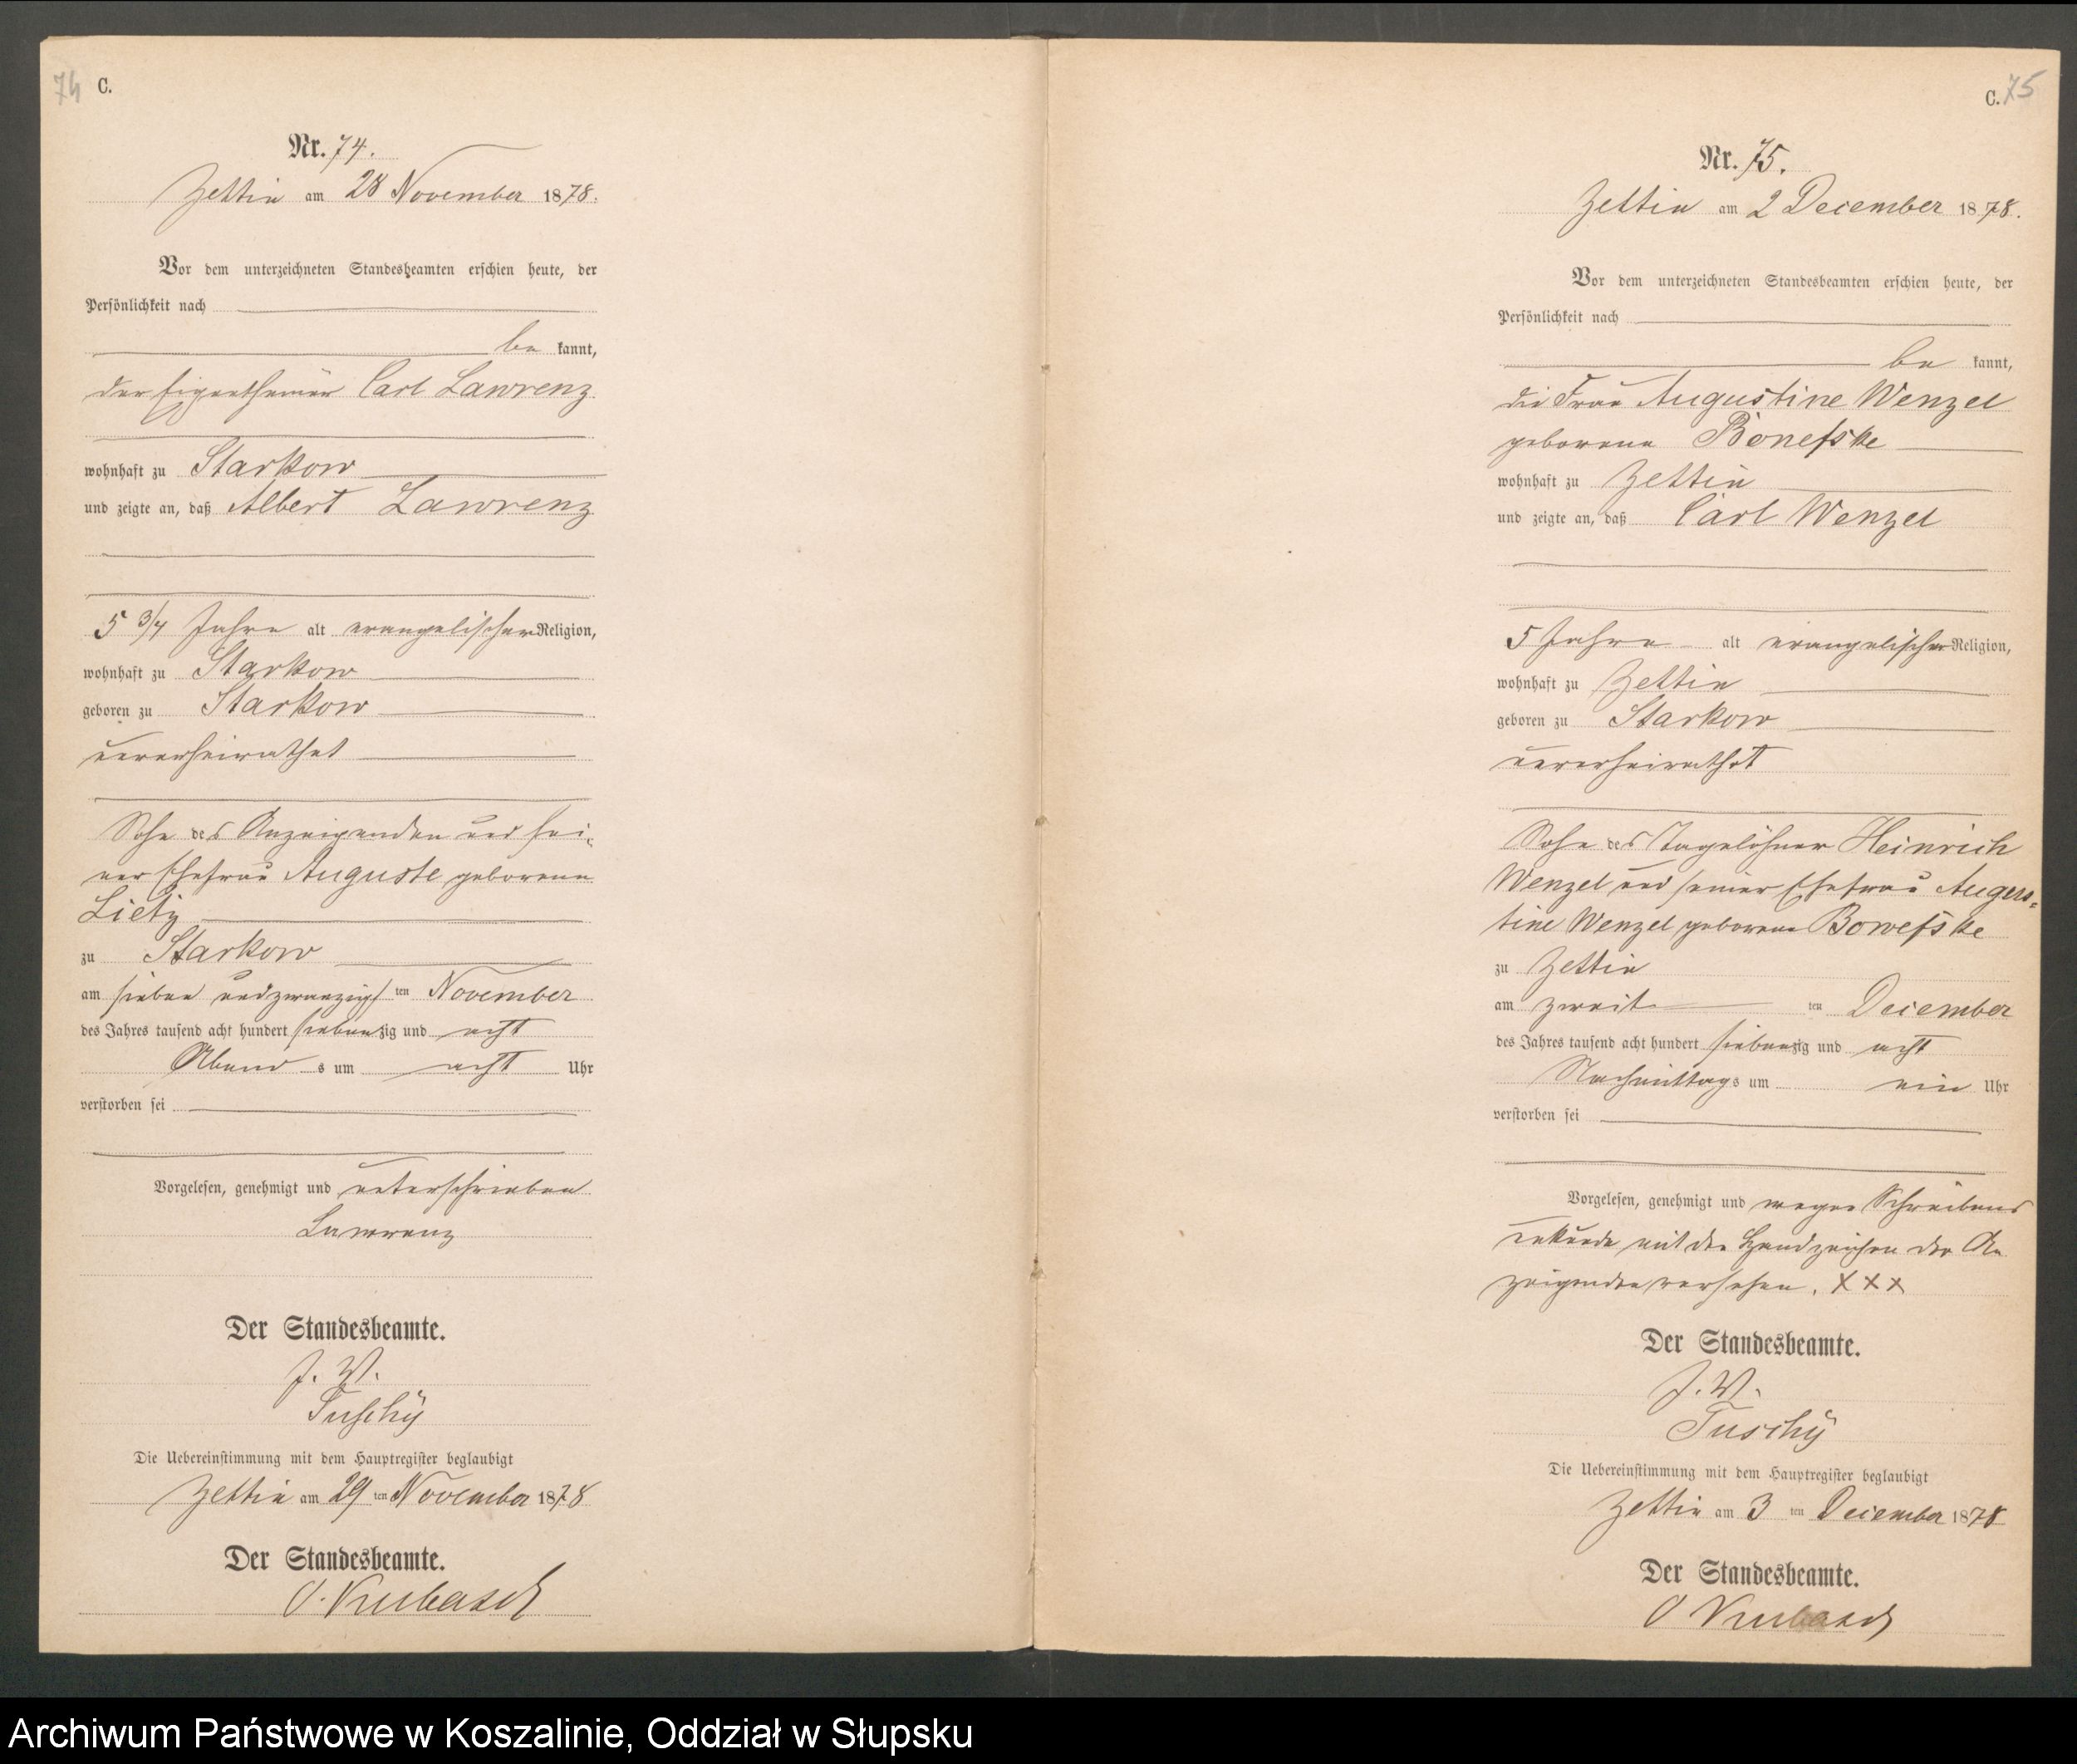 74 C.
Nr. 74.
Zettin am 28 November 1878.
Vor dem unterzeichneten Standesbeamten erschien heute, der
Persönlichkeit nach
be kannt,
der Eigenthümer Carl Lawrenz
wohnhaft zu Starkow
und zeigte an, daß Albert Lawrenz
5 3/4 Jahre alt evangelischer Religion,
wohnhaft zu Starkow
geboren zu Starkow
unverheirathet
Sohn des Anzeigenden und sei-
ner Ehefrau Auguste geborene
Lietz
zu Starkow
am sieben und zwanzigsten November
des Jahres tausend acht hundert siebenzig und acht
Abends um acht Uhr
verstorben sei
Vorgelesen, genehmigt und unterschrieben
Lawrenz
Der Standesbeamte.
J. V.
Tuschÿ
Die Uebereinstimmung mit dem Hauptregister beglaubigt
Zettin am 29 ten November 1878
Der Standesbeamte.
C. 75
Nr. 75.
Zettin am 2 December 1878.
Vor dem unterzeichneten Standesbeamten erschien heute, der
Persönlichkeit nach
be kannt,
die Frau Augustine Wenzel
geborene Bonefske
wohnhaft zu Zettin
und zeigte an, daß Carl Wenzel
5 Jahre alt evangelischer Religion,
wohnhaft zu Zettin
geboren zu Starkow
unverheirathet
Sohn des Tagelöhner Heinrich
Wenzel und seiner Ehefrau Augus-
tine Wenzel geborene Bowefske
zu Zettin
am zweiten December
des Jahres tausend acht hundert siebenzig und acht
Nachmittags um ein Uhr
verstorben sei
Vorgelesen, genehmigt und wegen Schreibens
unkunde mit den Handzeichen der An
zeigenden versehen. X X X
Der Standesbeamte.
J. V.
Tuschÿ
Die Uebereinstimmung mit dem Hauptregister beglaubigt
Zettin am 3 ten December 1878
Der Standesbeamte.
Archiwum Państwowe w Koszalinie, Oddział w Słupsku